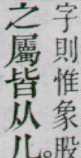 字則惟象既
之屬皆从儿。